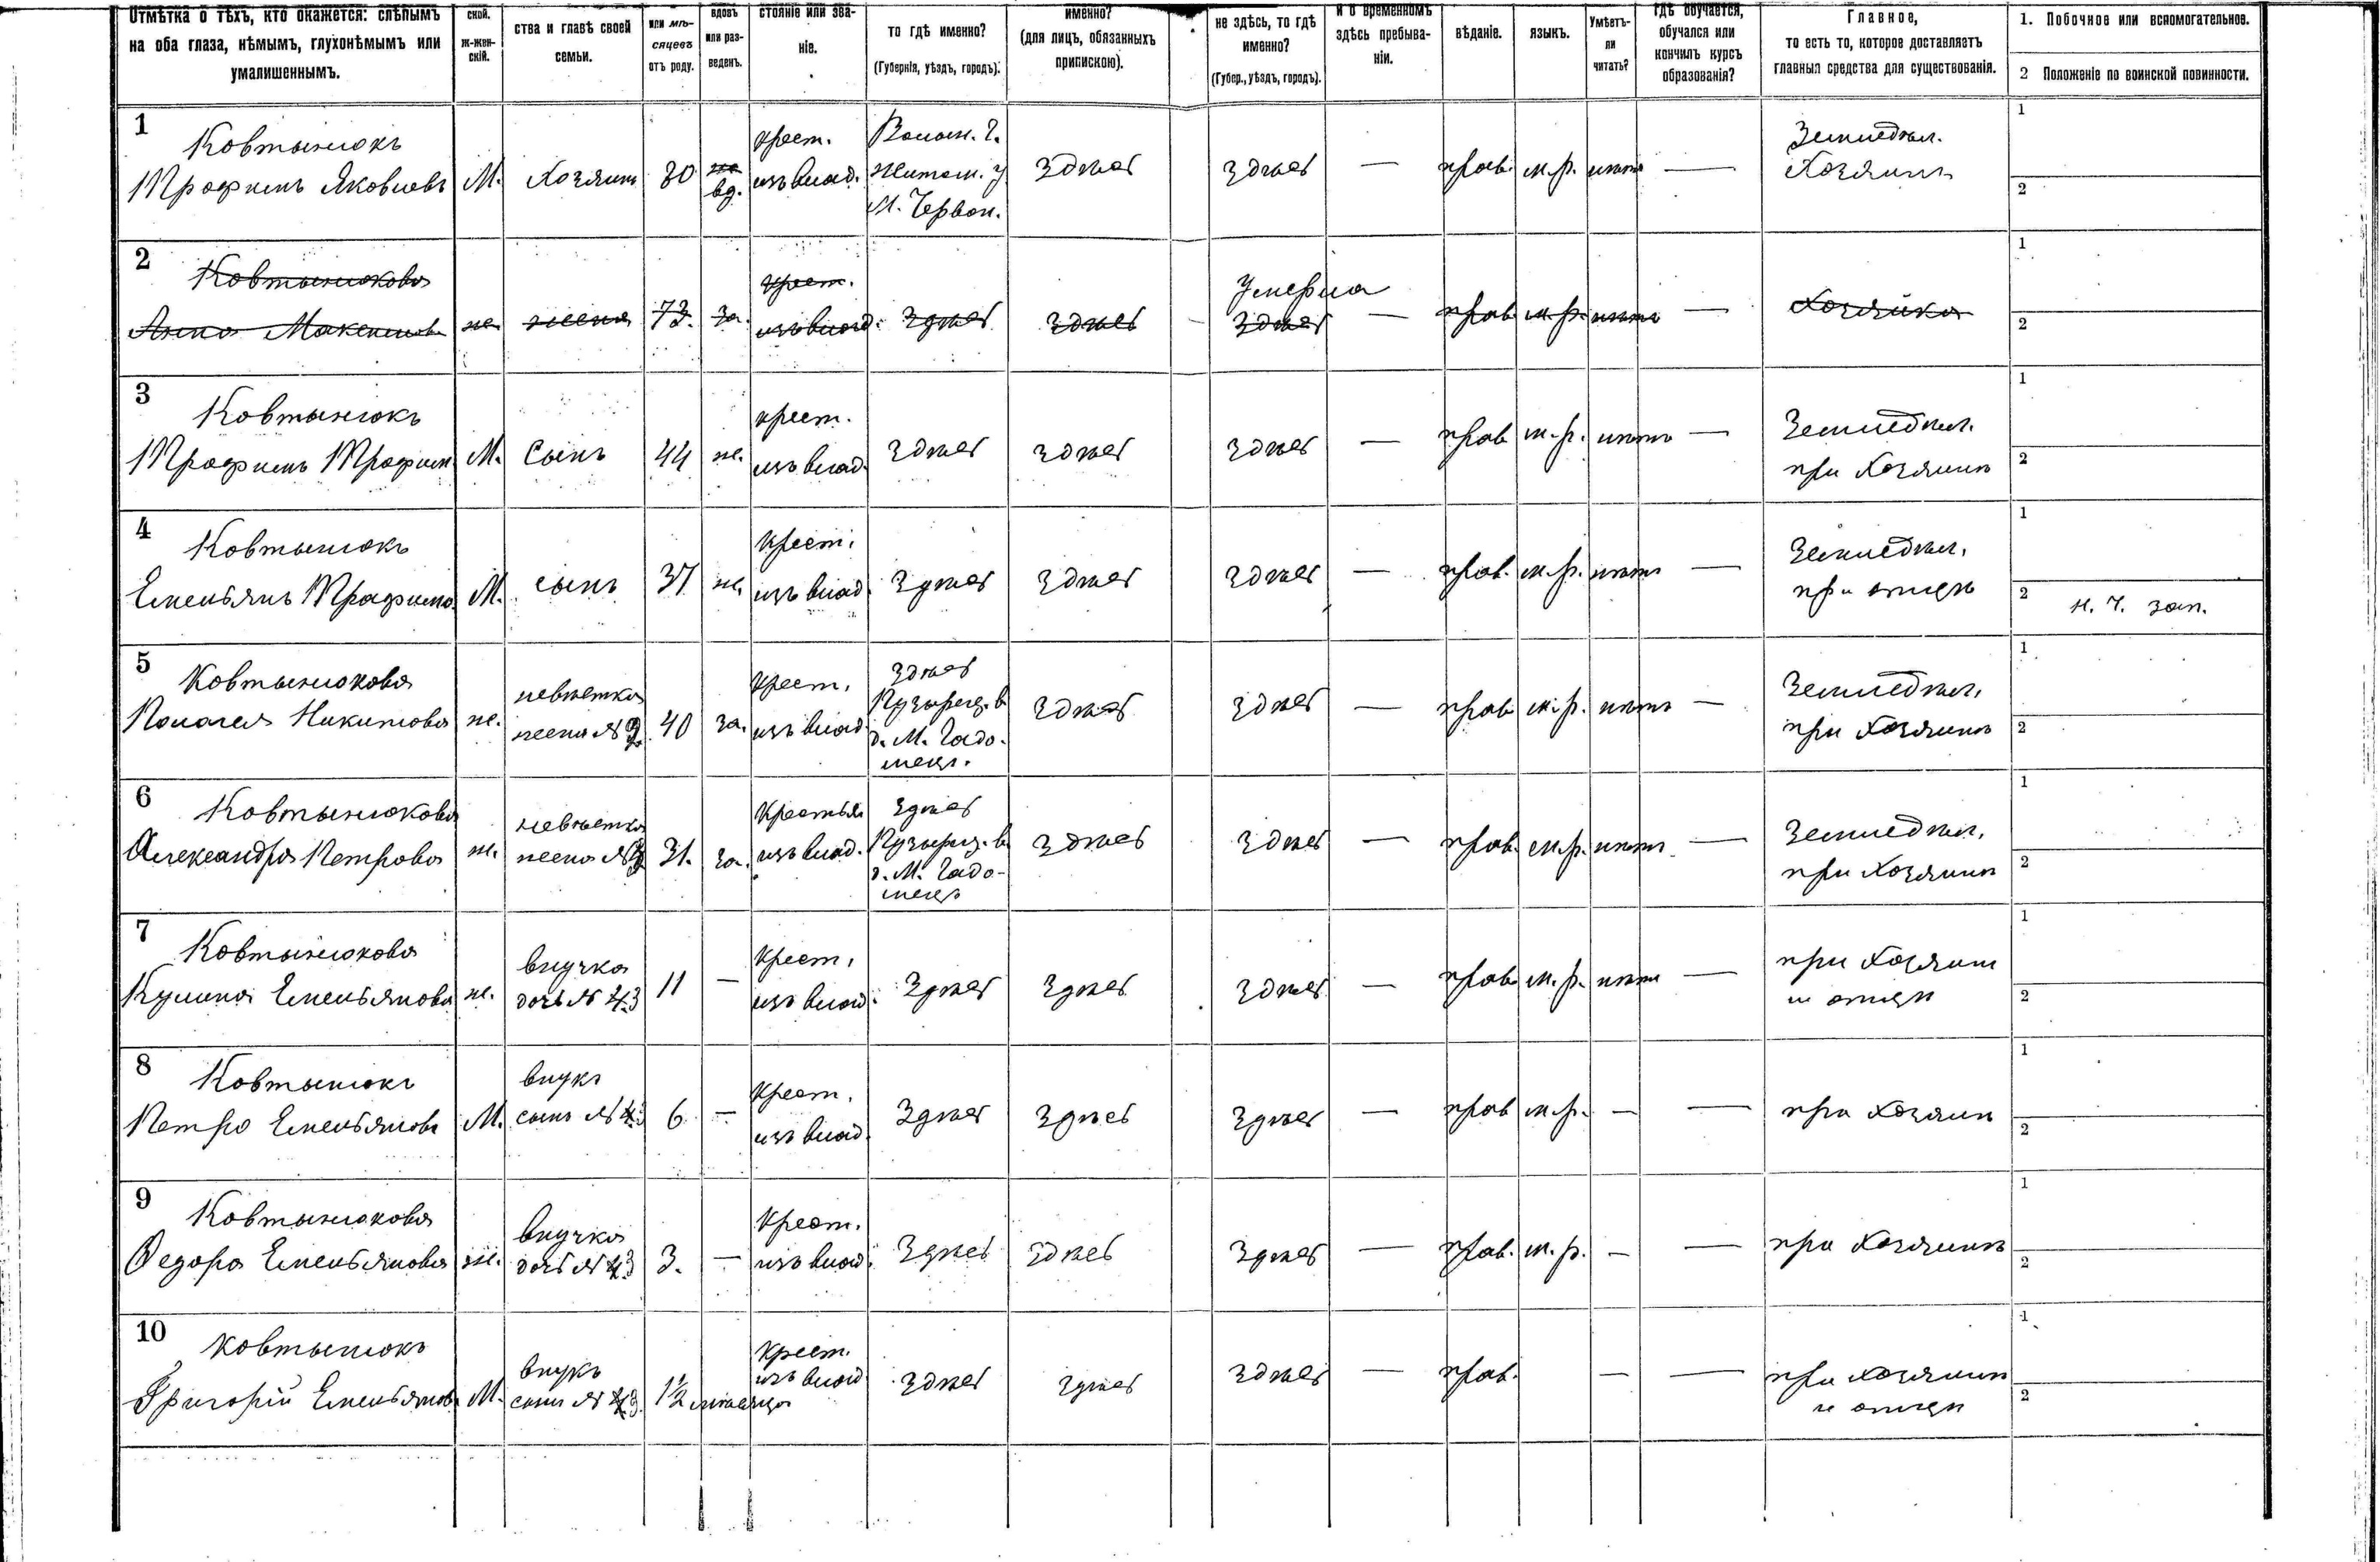 Отмѣтка о тѣхъ, кто окажется: слѣпымъ
на оба глаза, нѣмымъ, глухонѣмымъ или
умалишеннымъ.
ской.
ж-жен-
скій.
ства и главѣ своей
семьи.
или мѣ-
сяцевъ
отъ роду.
вдовъ
или раз-
веденъ.
стояніе или зва-
ніе.
то гдѣ именно?
(Губернія, уѣздъ, городъ).
именно?
(для лицъ, обязанныхъ
припискою).
не здѣсь, то гдѣ
именно?
(Губер., уѣздъ, городъ).
и о временномъ
здѣсь пребыва-
ніи.
вѣданіе.
языкъ.
Умѣетъ-
ли
читать?
гдѣ обучается,
обучался или
кончилъ курсъ
образованія?
Главное,
то есть то, которое доставляетъ
главныя средства для существованія.
1. Побочное или вспомогательное.
2 Положеніе по воинской повинности.
1
Ковтынюкъ
Трофимъ Яковлевъ
М. Хозяинъ 80 вд.
крест.
изъ влад.
Волын. г.
Житом. у
М. Червон.
здѣсь здѣсь — прав. м.р. нѣтъ —
Земледѣл.
Хозяинъ
1
2
2
Ковтынюкова
Анна Максимова
ж. жена 73. за.
крест.
изъ влад. здѣсь здѣсь
Умерла
здѣсь — прав. м.р. нѣтъ — Хозяйка
1
2
3
Ковтынюкъ
Трофимъ Трофим
М. Сынъ 44 ж.
крест.
изъ влад. здѣсь здѣсь здѣсь — прав м.р. нѣтъ —
Земледѣл.
при Хозяинѣ
1
2
4
Ковтынюкъ
Емельянъ Трофимо
М. сынъ 37 ж.
крест.
изъ влад. здѣсь здѣсь здѣсь — прав. м.р. нѣтъ —
Земледѣл.
при отцѣ
1
2 н. ч. зап.
5
Ковтынюкова
Полагея Никитова
ж.
невѣстка
жена №2 40 за.
крест.
изъ влад
здѣсь
Пузырец. в
д. М. Гадо-
мецъ.
здѣсь здѣсь — прав м.р. нѣтъ —
Земледѣл.
при Хозяинѣ
1
2
6
Ковтынюкова
Александра Петрова
ж.
невѣстка
жена №3 31. за.
Крестьян
изъ влад.
здѣсь
Пузырец. в
д. М. Гадо-
мецъ
здѣсь здѣсь — прав. м.р. нѣтъ —
Земледѣл.
при Хозяинѣ
1
2
7
Ковтынюкова
Кулина Емельянова
ж.
внучка
дочь № 3 11 —
крест.
изъ влад. здѣсь здѣсь здѣсь — прав м.р. нѣтъ —
при Хозяин
и отцѣ
1
2
8
Ковтынюкъ
Петро Емельяновъ
М.
внукъ
сынъ № 3 6 —
крест.
изъ влад. здѣсь здѣсь здѣсь — прав м.р. — — при Хозяин
1
2
9
Ковтынюкова
Федора Емельянова
ж.
внучка
дочь № 3 3. —
крест.
изъ влад. здѣсь здѣсь здѣсь — прав. м.р. — — при Хозяинѣ
1
2
10
Ковтынюкъ
Григорій Емельянов
М.
внукъ
сынъ № 3 1½ мѣсяца
крест.
изъ влад здѣсь здѣсь здѣсь — прав. — —
при хозяинѣ
и отцѣ
1
2